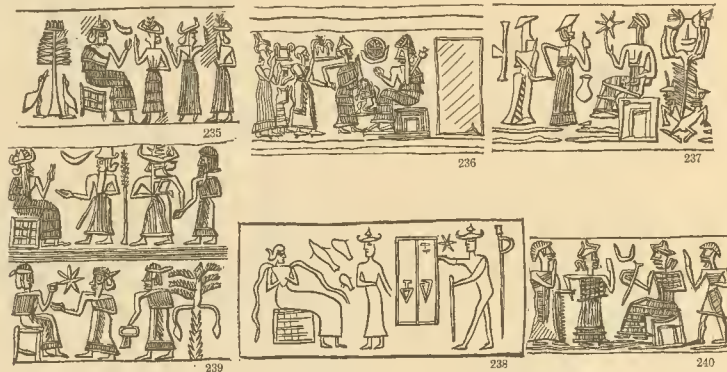 235
236
237
239
238
240